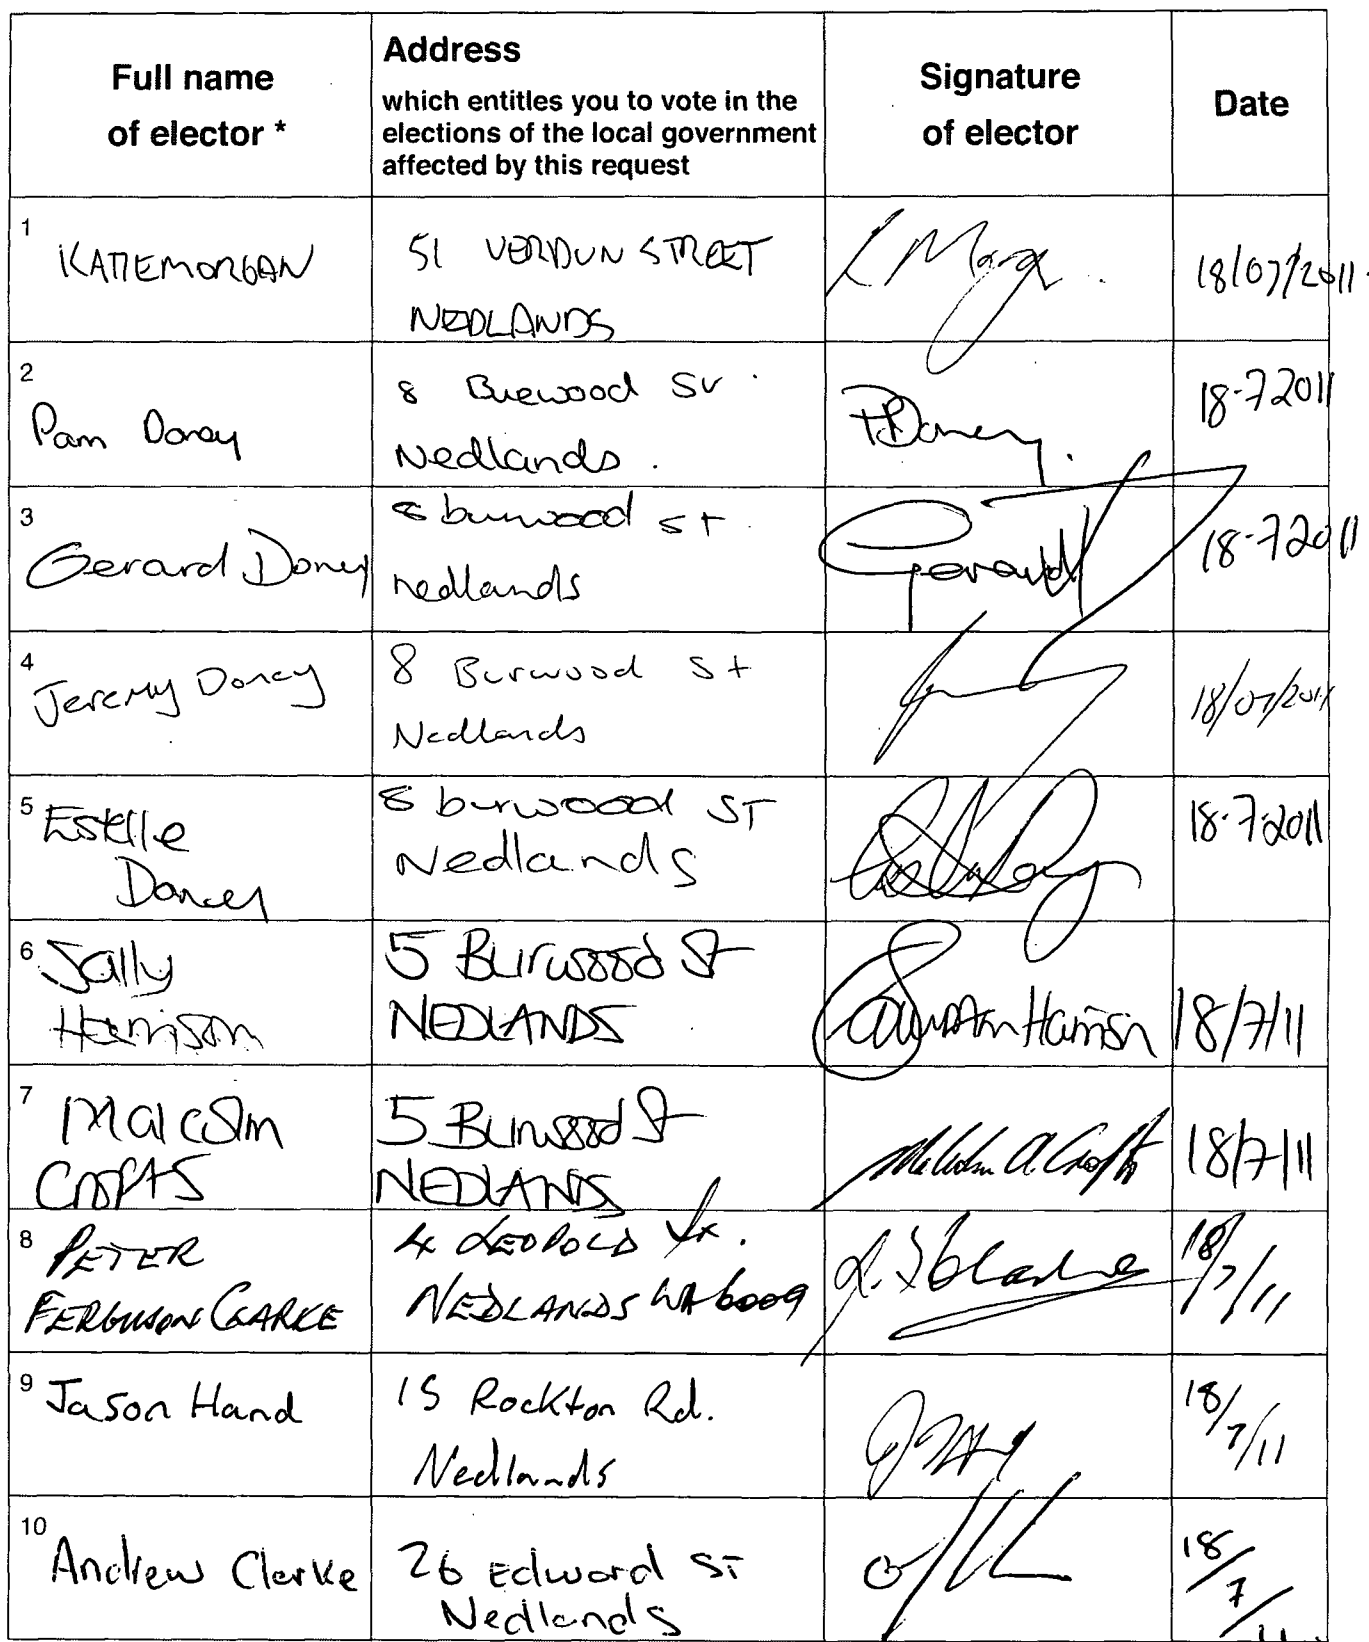 Full name
of elector *
Address
which entitles you to vote in the
elections of the local government
affected by this request
Signature
of elector
Date
1
KATIE MORGAN
51 VERDUN STREET
NEDLANDS
18/07/2011.
2
Pam Doney
8 Burwood St
Nedlands.
PDoney.
18-7 2011
3
Gerard Doney
8 burwood st
nedlands
Gerard
18-7 2011
4
Jeremy Doney
8 Burwood St
Nedlands
18/07/2011
5
Estelle
Doney
8 burwoood ST
Nedlands
18-7-2011
6
Sally
Harrison
5 Burwood St
NEDLANDS
Harrison
18/7/11
7
Malcolm
CROFTS
5 Burwood St
NEDLANDS
Malcolm A. Crofts
18/7/11
8
PETER
FERGUSON CLARKE
4 LEOPOLD
NEDLANDS WA 6009
18/7/11
9
Jason Hand
15 Rockton Rd.
Nedlands
18/7/11
10
Andrew Clarke
26 Edward ST
Nedlands
18/7/11